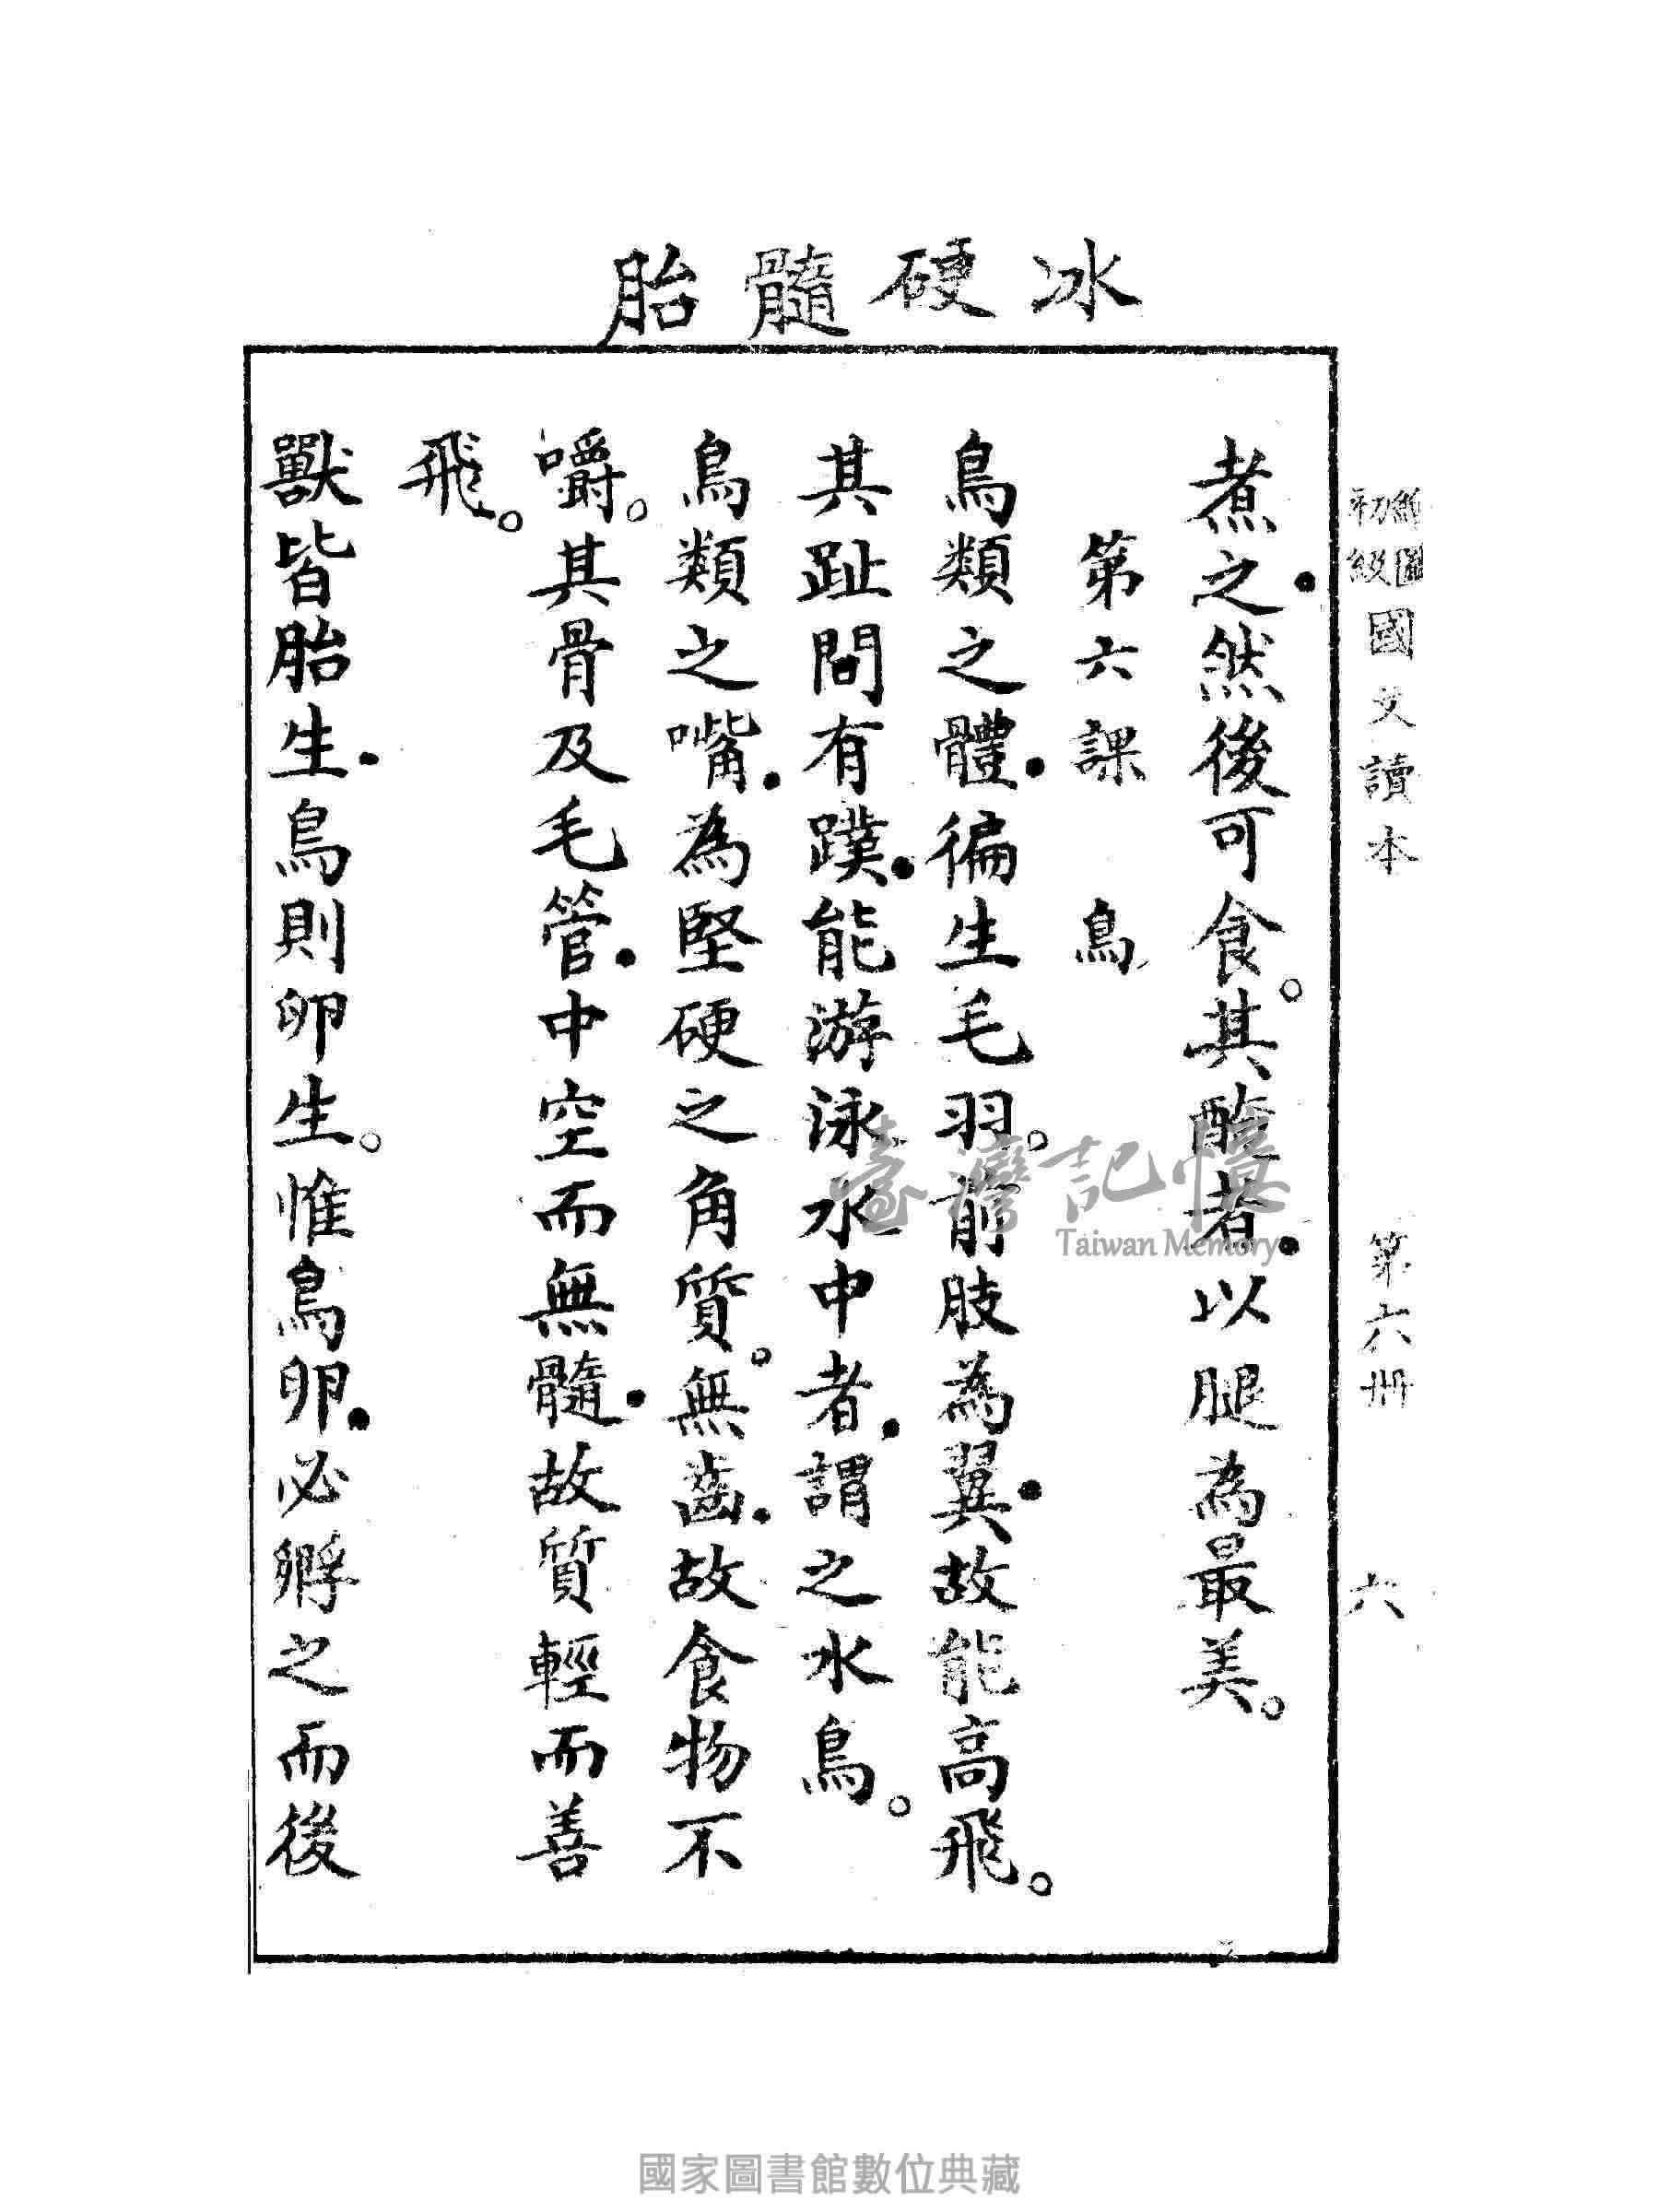 繪圖初級國文讀本 第六冊 六
冰硬髓胎
煮之、然後可食。其醃者、以腿為最美。
第六課 鳥
鳥類之體、徧生毛羽。前肢為翼、故能高飛。
其趾間有蹼、能游泳水中者、謂之水鳥。
鳥類之嘴、為堅硬之角質。無齒、故食物不
嚼。其骨及毛管、中空而無髓、故質輕而善
飛。
獸皆胎生、鳥則卵生。惟鳥卵、必孵之而後
臺灣記憶
Taiwan Memory
國家圖書館數位典藏